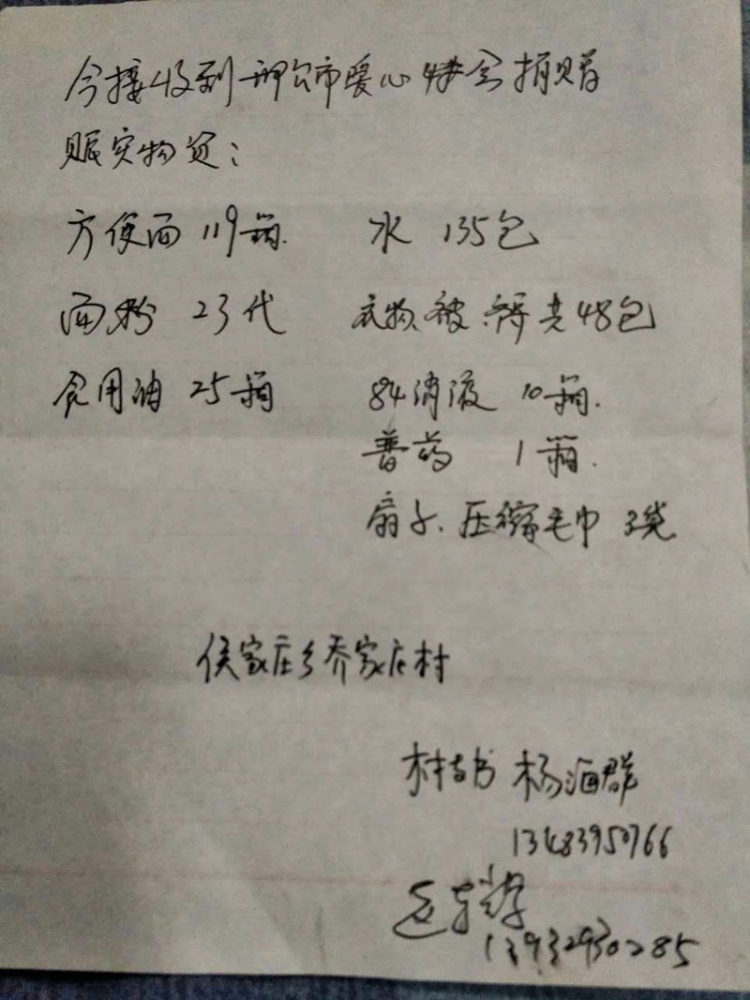 今接收到邢台市爱心协会捐赠
赈灾物资:
方便面 119箱. 水 135包
面粉 23代 衣物.被.褥共48包
食用油 25箱 84消液 10箱.
普药 1箱.
扇子.压缩毛巾 3袋
侯家庄乡乔家庄村
村支书 杨海群
13483950766
13932930285